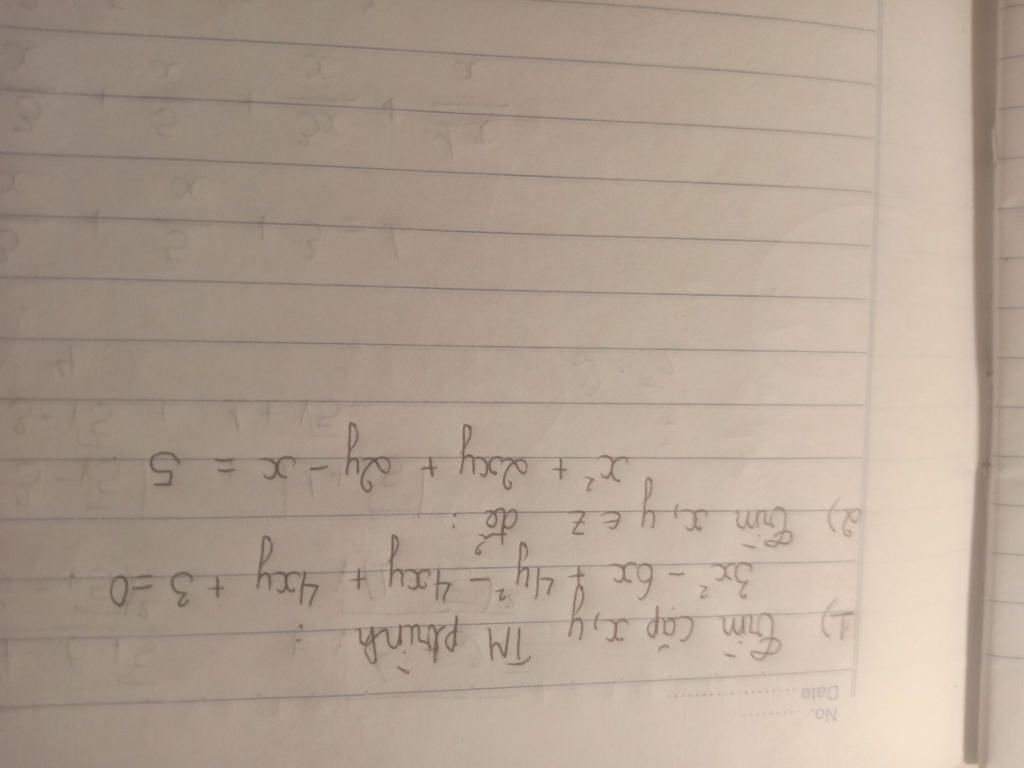 No. ........
Date ..................
1) Tìm cặp x, y TM ptrình :
3x² - 6x + 4y² - 4xy + 4xy + 3 = 0.
2) Tìm x, y ∈ Z để :
x² + 2xy + 2y - x = 5